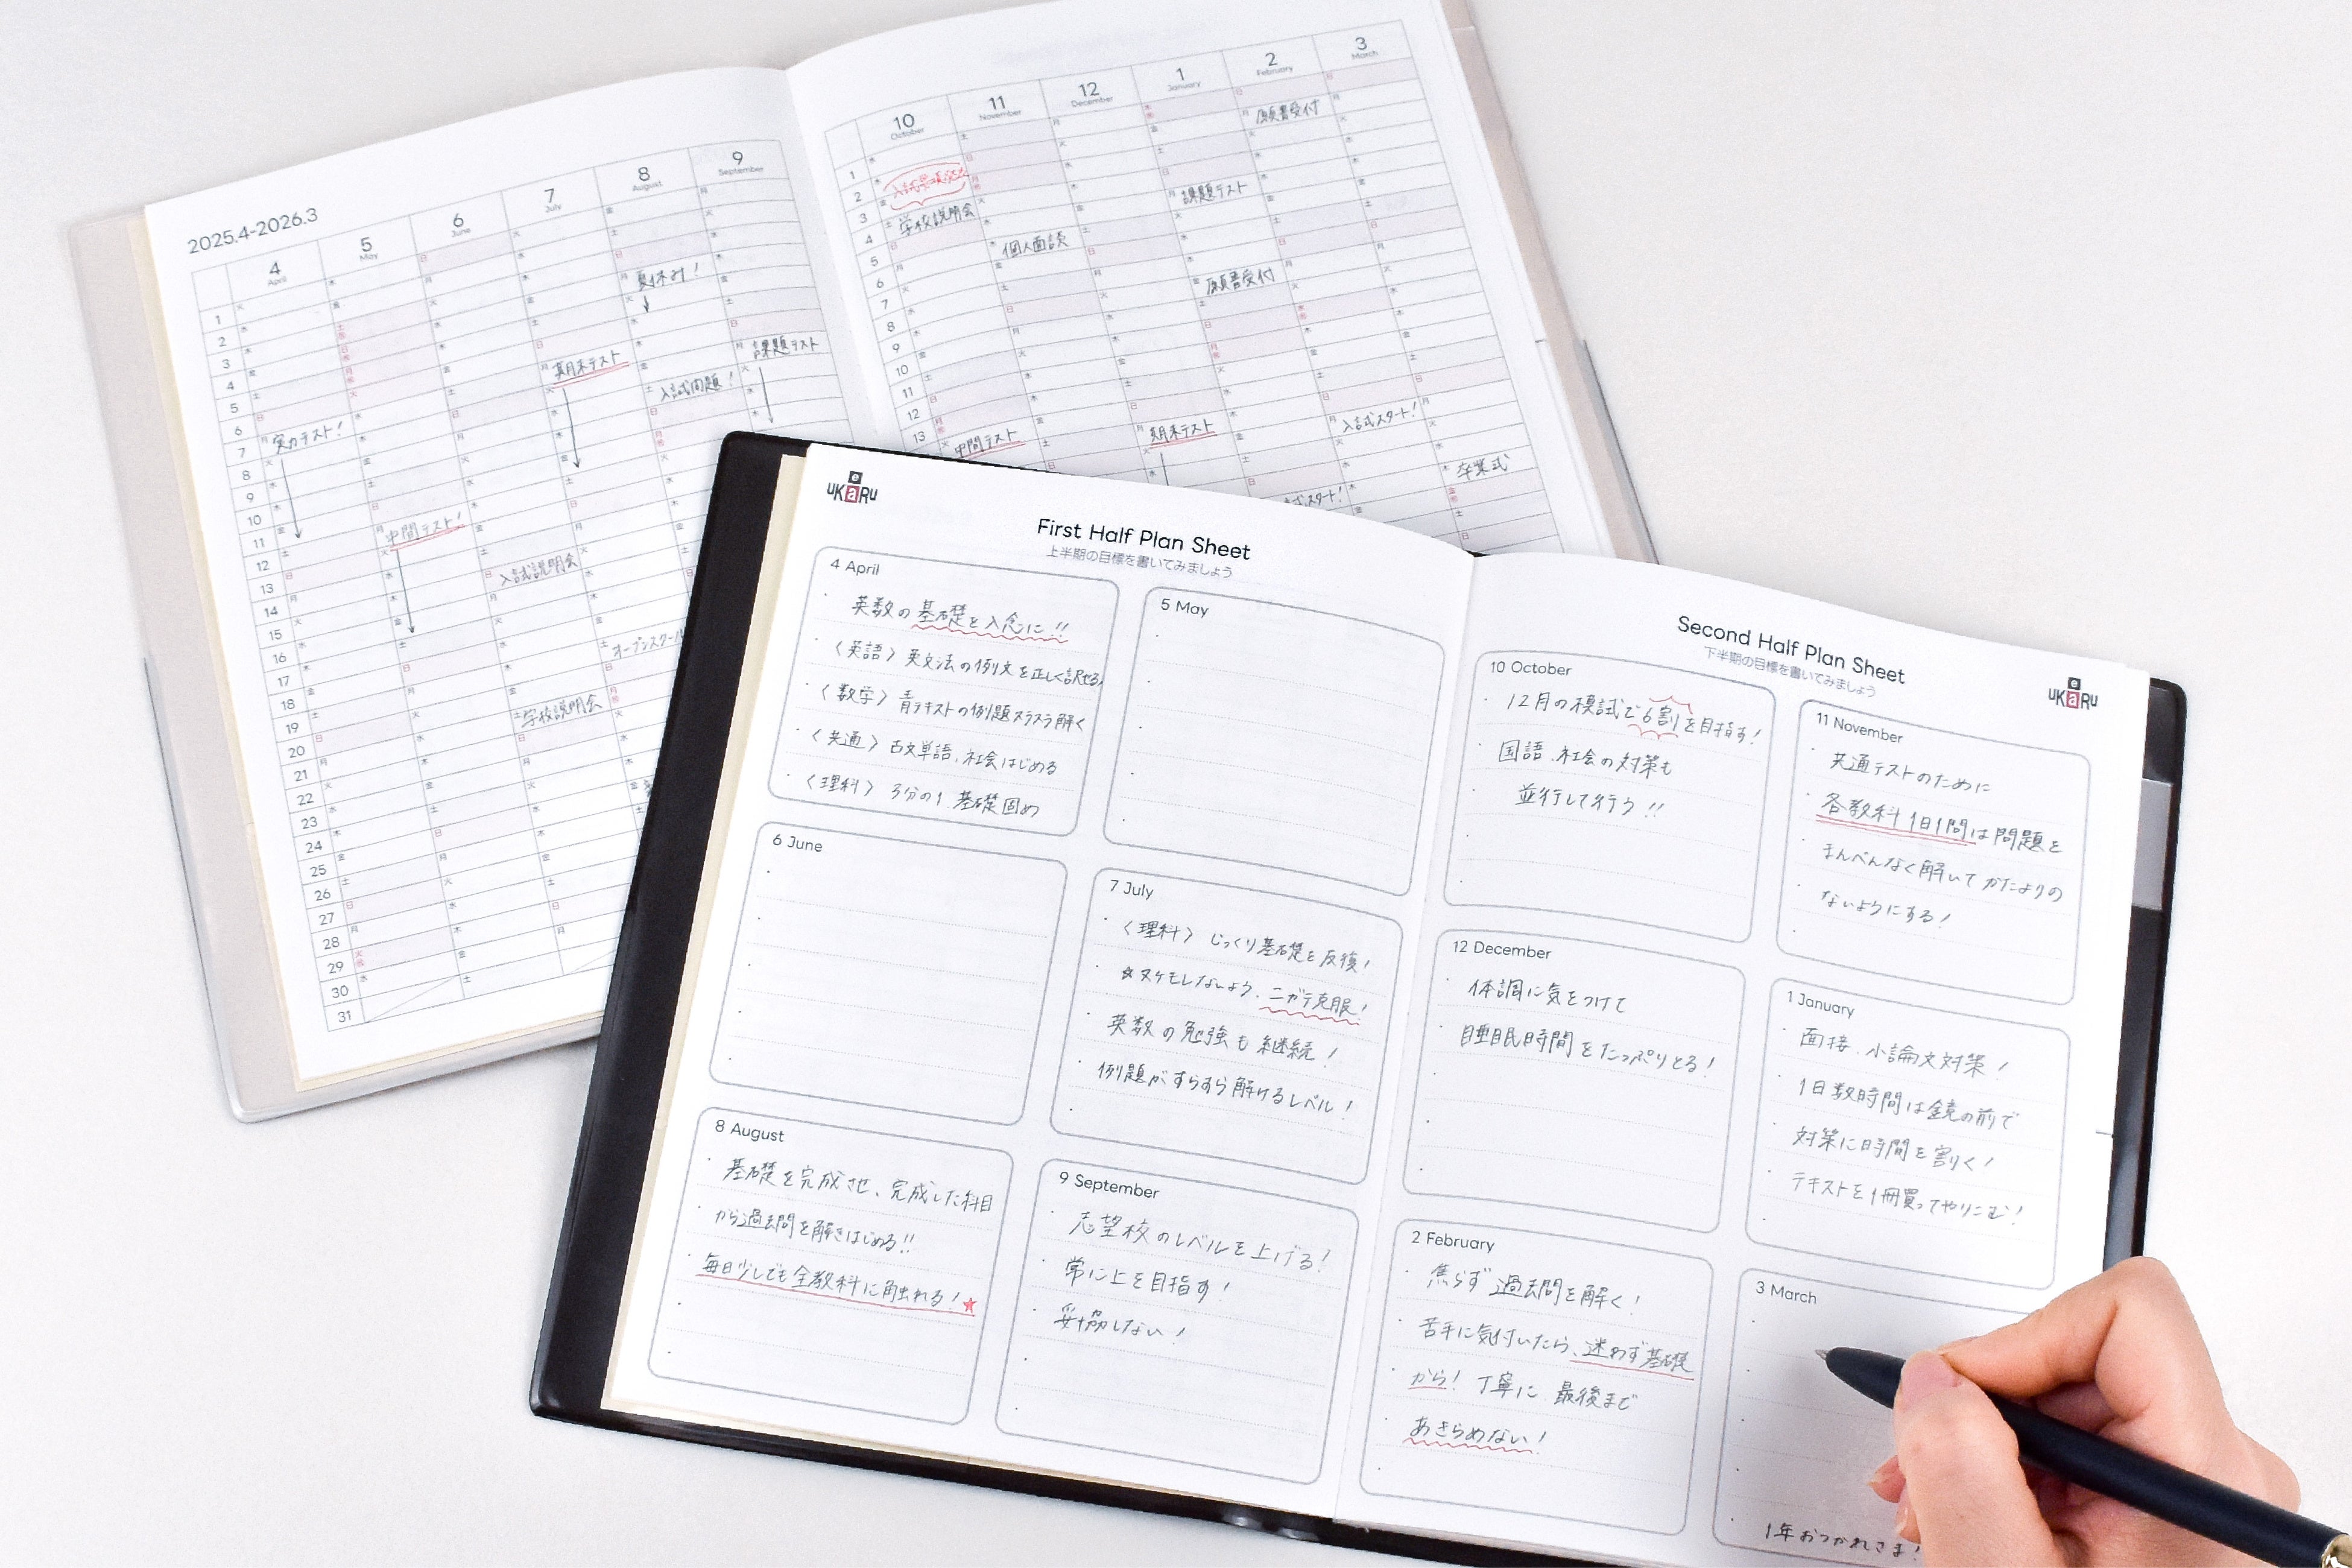 2025.4-2026.3
4
April
5
May
6
June
7
July
8
August
9
September
10
October
11
November
12
December
1
January
2
February
3
March
1
2
3
4
5
6
7
8
9
10
11
12
13
14
15
16
17
18
19
20
21
22
23
24
25
26
27
28
29
30
31
実力テスト!
中間テスト!
入試説明会
学校説明会
期末テスト
オープンスクール
夏休み!
入試問題!
課題テスト
1
2
3
4
5
6
7
8
9
10
11
12
13
学校説明会
中間テスト
個人面談
期末テスト
課題テスト
願書受付
願書受付
入試スタート!
卒業式
ukaRu
First Half Plan Sheet
上半期の目標を書いてみましょう
4 April
英数の基礎を入念に!!
〈英語〉英文法の例文を正しく訳せる
〈数学〉青テキストの例題スラスラ解く
〈共通〉古文単語、社会はじめる
〈理科〉3分の1 基礎固め
5 May
6 June
7 July
〈理科〉じっくり基礎を反復!
☆ヌケモレないよう、ニガテ克服!
英数の勉強も継続!
例題がすらすら解けるレベル!
8 August
基礎を完成させ、完成した科目
から過去問を解きはじめる!!
毎日少しでも全教科に触れる!★
9 September
志望校のレベルを上げる!
常に上を目指す!
妥協しない!
Second Half Plan Sheet
下半期の目標を書いてみましょう
ukaRu
10 October
12月の模試で6割を目指す!
国語、社会の対策も
並行して行う!!
11 November
共通テストのために
各教科1日1問は問題を
まんべんなく解いてかたよりの
ないようにする!
12 December
体調に気をつけて
睡眠時間をたっぷりとる!
1 January
面接、小論文対策!
1日数時間は鏡の前で
対策に時間を割く!
テキストを1冊買ってやりこむ!
2 February
焦らず過去問を解く!
苦手に気付いたら、迷わず基礎
から! 丁寧に 最後まで
あきらめない!
3 March
1年おつかれさま!